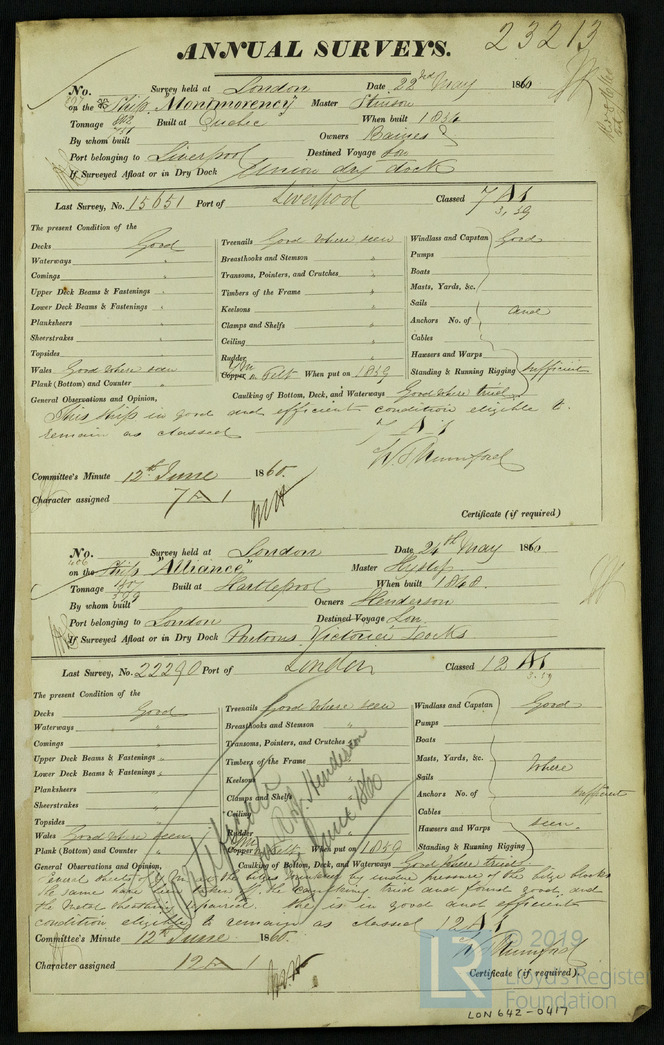 23213
ANNUAL SURVEYS.
No. Survey held at London Date 22nd May 1860
on the Ship "Montmorency" Master Stinson
Tonnage Built at Quebec When built 1854
By whom built Owners Baines
Port belonging to Liverpool Destined Voyage Lon
If Surveyed Afloat or in Dry Dock Union dry dock
Last Survey, No. 15651 Port of Liverpool Classed 7 A1
3,59
The present Condition of the
Decks Good
Waterways "
Comings "
Upper Deck Beams & Fastenings "
Lower Deck Beams & Fastenings "
Planksheers "
Sheerstrakes "
Topsides "
Wales Good where seen
Plank (Bottom) and Counter "
Treenails Good where seen
Breasthooks and Stemson "
Transoms, Pointers, and Crutches "
Timbers of the Frame "
Keelsons "
Clamps and Shelfs "
Ceiling "
Rudder "
Copper YM on Felt When put on 1859
Windlass and Capstan Good
Pumps
Boats
Masts, Yards, &c.
Sails
Anchors No. of and
Cables
Hawsers and Warps
Standing & Running Rigging sufficient
Caulking of Bottom, Deck, and Waterways Good where tried
General Observations and Opinion,
This Ship is in good and efficient condition eligible to
remain as classed 7 A1
W S Mumford
Committee's Minute 12th June 1860.
Character assigned 7 A 1
Certificate (if required)
No. Survey held at London Date 24th May 1860
406
on the Ship "Alliance" Master Hyslop
Tonnage Built at Hartlepool When built 1848.
By whom built Owners Henderson
Port belonging to London Destined Voyage Lon
If Surveyed Afloat or in Dry Dock Victoria Docks
Last Survey, No. 22290 Port of London Classed 12 A1
3.59
The present Condition of the
Decks Good
Waterways "
Comings "
Upper Deck Beams & Fastenings "
Lower Deck Beams & Fastenings "
Planksheers "
Sheerstrakes "
Topsides "
Wales Good where seen
Plank (Bottom) and Counter "
Treenails Good where seen
Breasthooks and Stemson "
Transoms, Pointers, and Crutches "
Timbers of the Frame "
Keelsons "
Clamps and Shelfs "
Ceiling
Rudder
Copper YM on Felt When put on 1859
Windlass and Capstan Good
Pumps
Boats
Masts, Yards, &c. Where
Sails
Anchors No. of sufficient
Cables
Hawsers and Warps seen
Standing & Running Rigging
Certificate
Henderson
June 1860
Caulking of Bottom, Deck, and Waterways Good where tried
General Observations and Opinion,
Several sheets of YM at the bilge by undue pressure of the bilge blocks
the same have been taken off the caulking tried and found good, and
the metal sheathing repaired. She is in good and efficient
condition eligible to remain as classed 12 A1
W S Mumford
Committee's Minute 12th June 1860.
Character assigned 12 A 1
Certificate (if required).
© 2019
LR
Lloyd's Register
Foundation
LON 642-0417